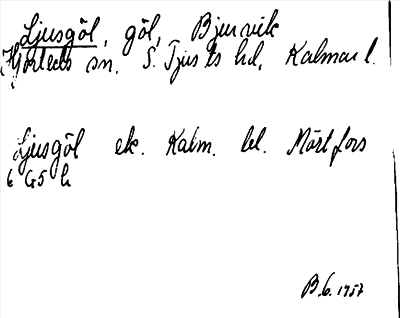 Ljusgöl, göl, Bjurvik
Hjorteds sn. S. Tjusts hd, Kalmar l.
Ljusgöl ek. Kalm. bl. Mörtfors
6 G5 h
B.G. 1957